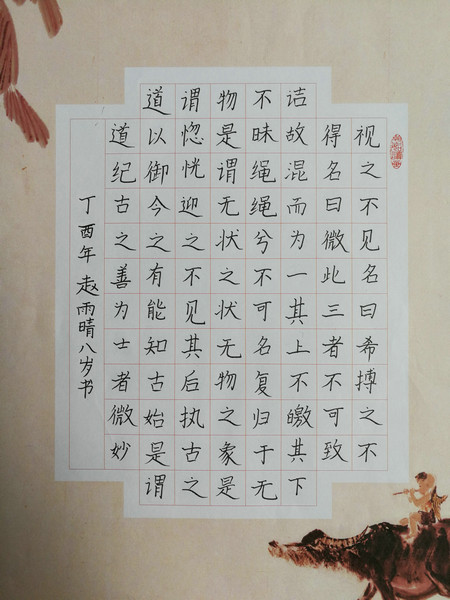 视之不见名曰希搏之不
得名曰微此三者不可致
诘故混而为一其上不皦其下
不昧绳绳兮不可名复归于无
物是谓无状之状无物之象是
谓惚恍迎之不见其后执古之
道以御今之有能知古始是谓
道纪古之善为士者微妙
丁酉年 赵雨晴八岁书